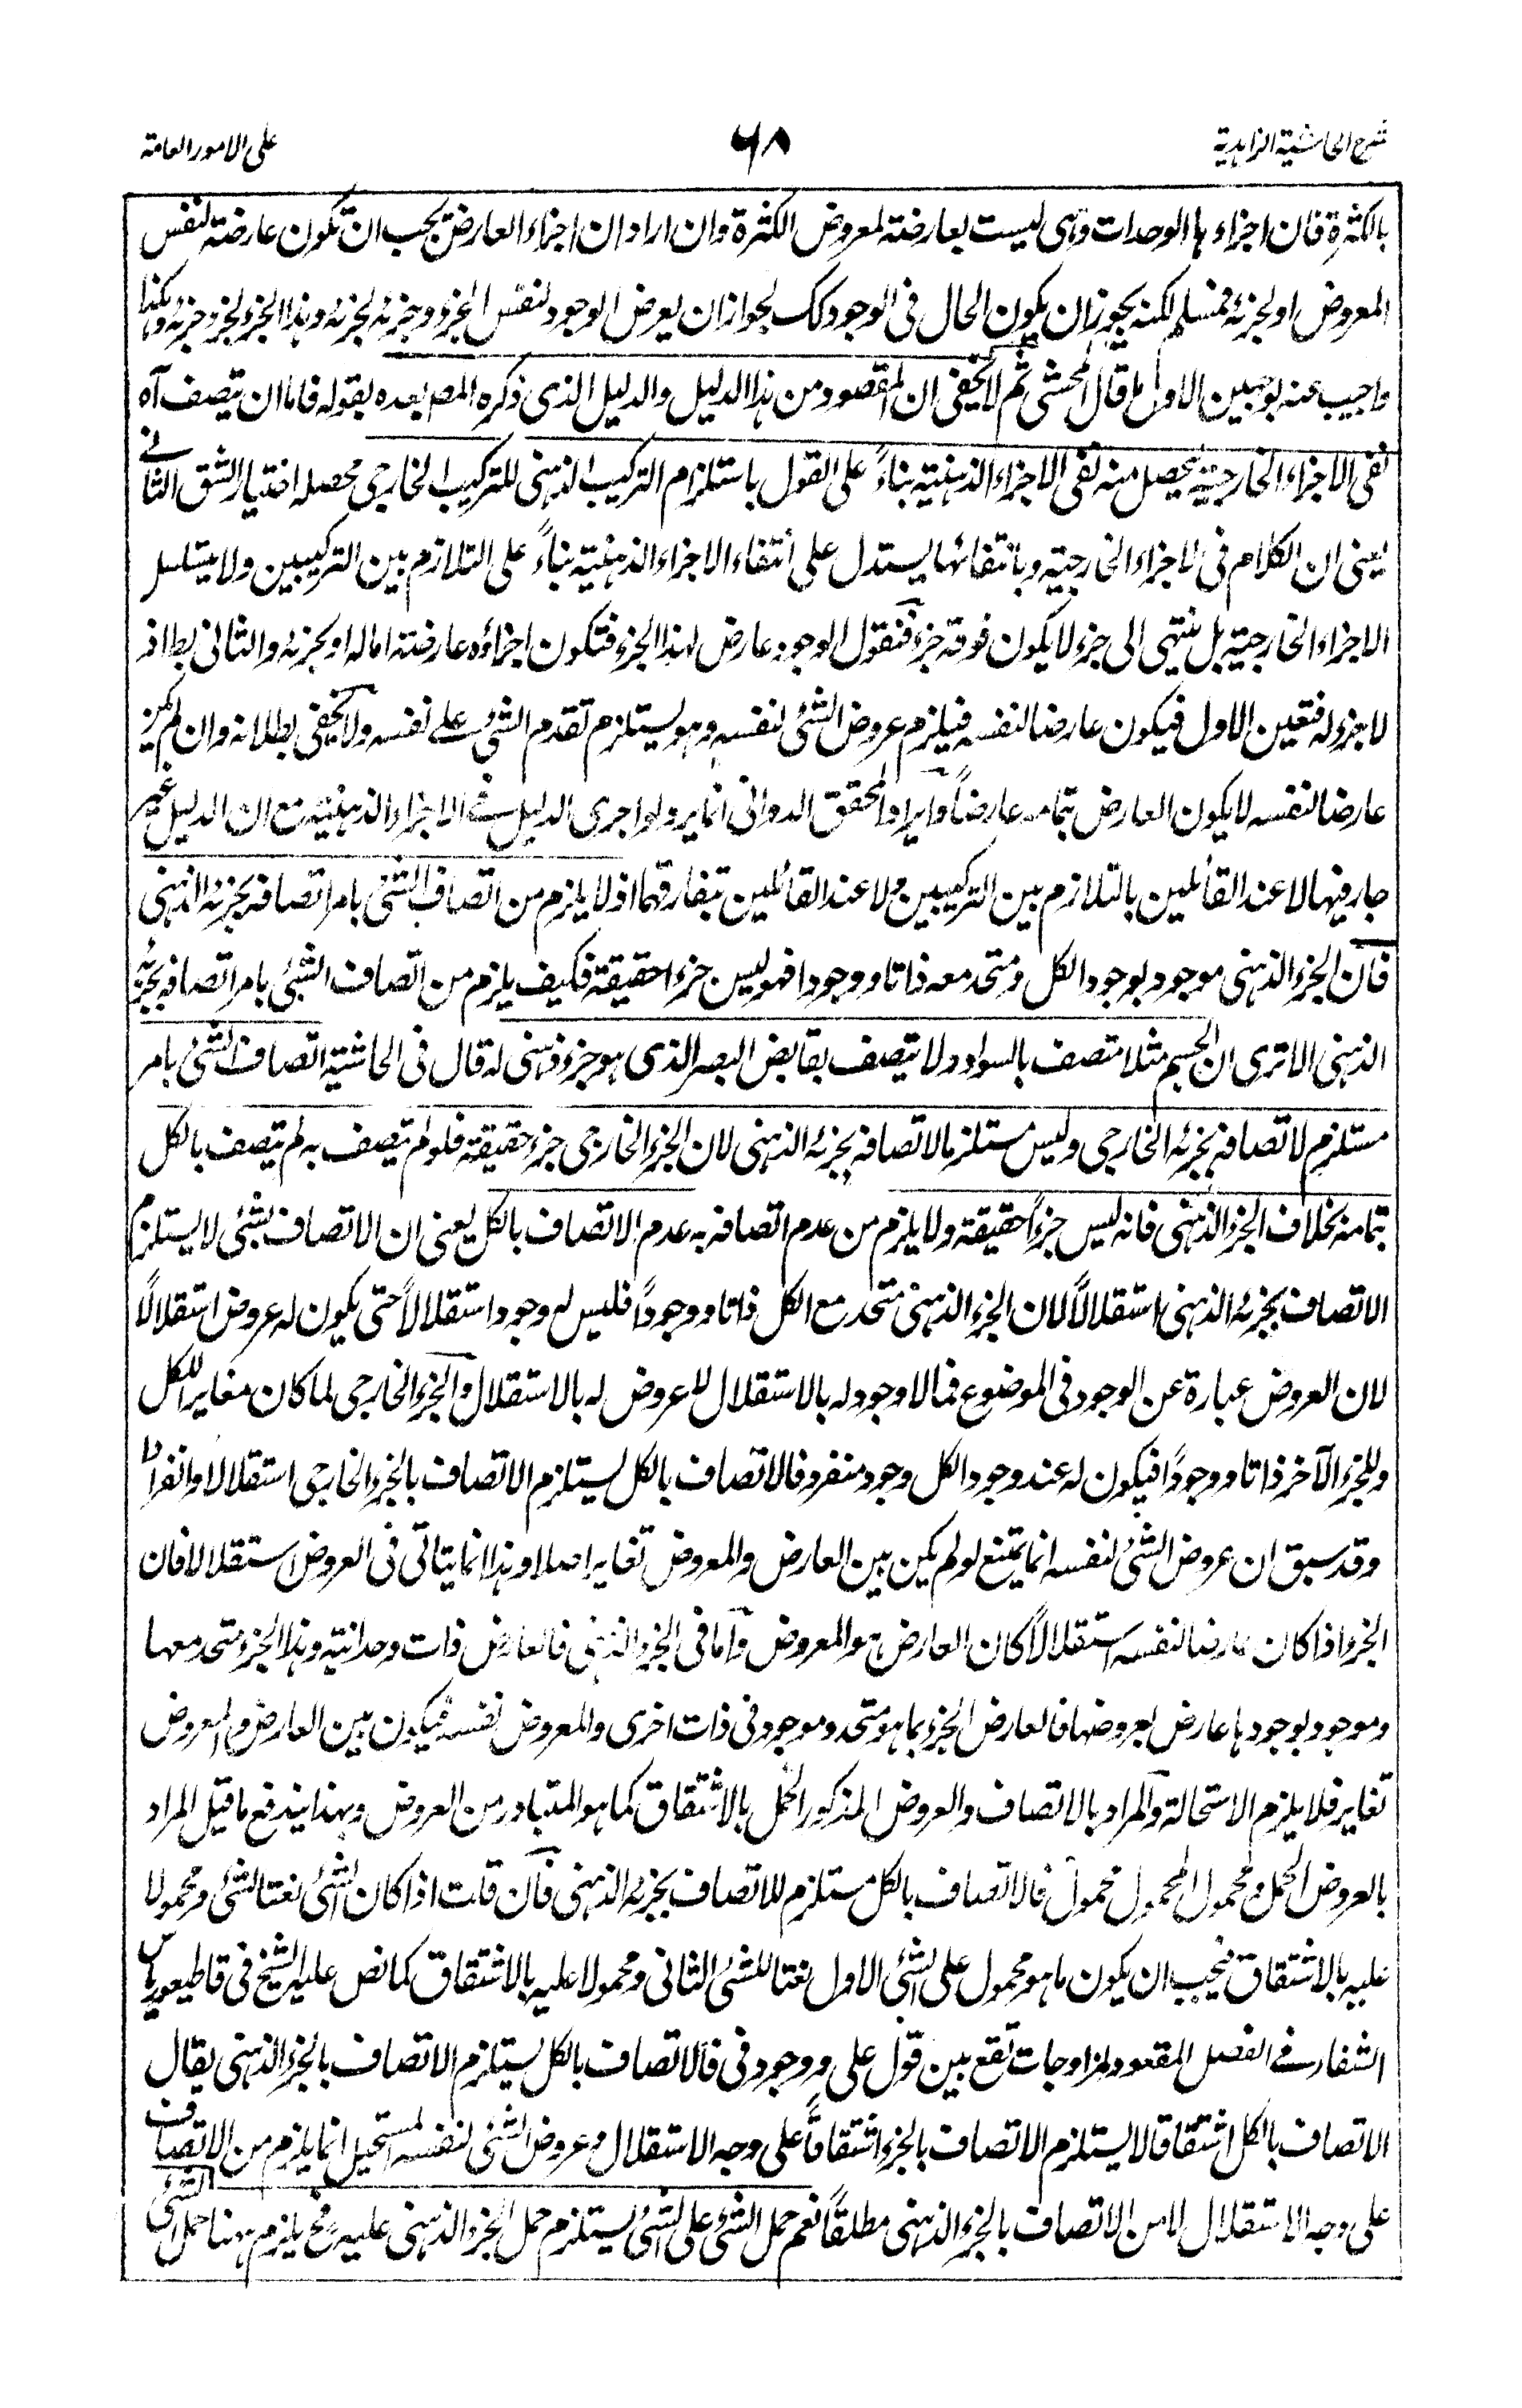 شرح الحاشية الزاهدية
٦٨
على الامور العامة
بالكثرة فان اجزاءها الوحدات وهى ليست بعارضة لمعروض الكثرة وان اراد ان اجزاء العارض يجب ان تكون عارضة لنفس
المعروض او لجزئه فمسلم لكنه يجوز ان يكون الحال فى الوجود كك لجواز ان يعرض الوجود لنفس الجزء وجزئه لجزئه وهذا الجزء لجزء جزئه وهكذا
واجيب عنه بوجهين الاول ما قال المحشى ثم لا يخفى ان المقصود من هذا الدليل والدليل الذى ذكره المص بعده بقوله فاما ان يتصف آه
نفى الاجزاء الخارجية يحصل منه نفى الاجزاء الذهنية بناءً على القول باستلزام التركيب الذهنى للتركيب الخارجى محصله اختيار الشق الثانے
يعنى ان الكلام فى الاجزاء الخارجية وبانتفائها يستدل على انتفاء الاجزاء الذهنية بناءً على التلازم بين التركيبين ولا يتسلسل
الاجزاء الخارجية بل ينتهى الى جزء لا يكون فوقه جزء فنقول الوجود عارض لهذا الجزء فتكون اجزاؤه عارضة اما له او لجزئه والثانى بط اذ
لا جزء له فتعين الاول فيكون عارضا لنفسه فيلزم عروض الشئ لنفسه وهو يستلزم تقدم الشئ علے نفسه ولا يخفى بطلانه وان لم يكن
عارضا لنفسه لا يكون العارض بتمامه عارضاً وايراد المحقق الدوانى انما يرد لو اجرى الدليل فے الاجزاء الذهنية مع ان الدليل غير
جار فيها لا عند القائلين بالتلازم بين التركيبين ولا عند القائلين بتفارقهما اذ لا يلزم من اتصاف الشئ بامر اتصافه بجزئه الذهنى
فان الجزء الذهنى موجود بوجود الكل ومتحد معه ذاتا ووجودا فهو ليس جزءا حقيقة فكيف يلزم من اتصاف الشئ بامر اتصافه بجزئه
الذهنى الا ترى ان الجسم مثلا متصف بالسواد ولا يتصف بقابض البصر الذى هو جزء ذهنى له قال فى الحاشية اتصاف الشئ بامر
مستلزم لاتصافه بجزئه الخارجى وليس مستلزما لاتصافه بجزئه الذهنى لان الجزء الخارجى جزء حقيقة فلو لم يتصف به لم يتصف بالكل
بتمامه بخلاف الجزء الذهنى فانه ليس جزءاً حقيقة ولا يلزم من عدم اتصافه به عدم الاتصاف بالكل يعنى ان الاتصاف بشئ لا يستلزم
الاتصاف بجزئه الذهنى استقلالاً لان الجزء الذهنى متحد مع الكل ذاتا ووجوداً فليس له وجود استقلالاً حتى يكون له عروض استقلالاً
لان العروض عبارة عن الوجود فى الموضوع فما لا وجود له بالاستقلال لا عروض له بالاستقلال والجزء الخارجى لما كان مغايرا للكل
وللجزء الآخر ذاتا ووجوداً فيكون له عند وجود الكل وجود منفرد فالاتصاف بالكل يستلزم الاتصاف بالجزء الخارجى استقلالا وانفرادا
وقد سبق ان عروض الشئ لنفسه انما يمتنع لو لم يكن بين العارض والمعروض تغاير اصلا وهذا انما يتاتى فى العروض استقلالا فان
الجزء اذا كان عارضا لنفسه استقلالاً كان العارض هو المعروض واما فى الجزء الذهنى فالعارض ذات وحدانية وهذا الجزء متحد معها
وموجود بوجودها عارض بعروضها فالعارض الجزء بما هو متحد وموجود فى ذات اخرى والمعروض نفسه فيكون بين العارض والمعروض
تغاير فلا يلزم الاستحالة والمراد بالاتصاف والعروض المذكور الحمل بالاشتقاق كما هو المتبادر من العروض وبهذا يندفع ما قيل المراد
بالعروض الحمل ومحمول المحمول محمول فالاتصاف بالكل مستلزم للاتصاف بجزئه الذهنى فان قلت اذا كان الشئ نعتا لشئ ومحمولا
عليه بالاشتقاق فيجب ان يكون ما هو محمول على الشئ الاول نعتا للشئ الثانى ومحمولا عليه بالاشتقاق كما نص عليه الشيخ فى قاطيغورياس
الشفاء فے الفصل المعقود لمزاوجات تقع بين قول على ووجود فى فالاتصاف بالكل يستلزم الاتصاف بالجزء الذهنى يقال
الاتصاف بالكل اشتقاقا لا يستلزم الاتصاف بالجزء اشتقاقاً على وجه الاستقلال وعروض الشئ لنفسه المستحيل انما يلزم من الاتصاف
على وجه الاستقلال لا من الاتصاف بالجزء الذهنى مطلقاً نعم حمل الشئ على الشئ يستلزم حمل الجزء الذهنى عليه فح يلزم ههنا حمل الشئ